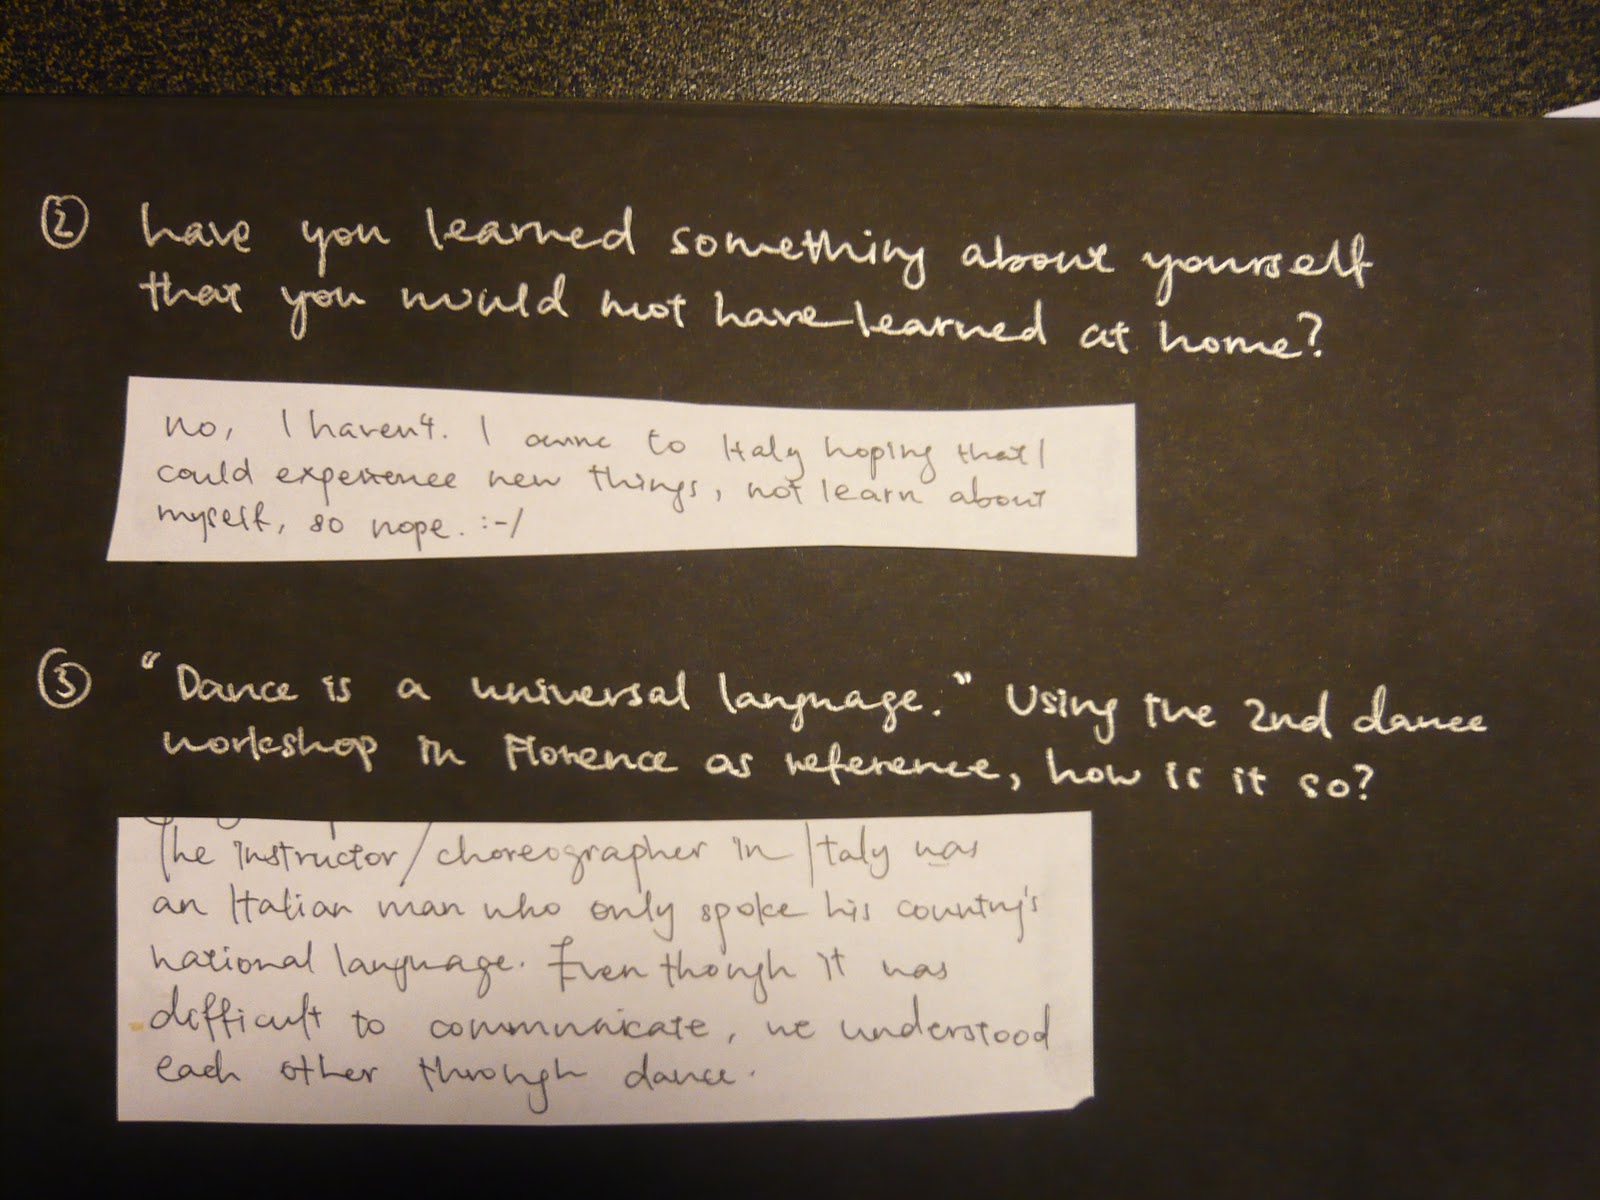 ② have you learned something about yourself
that you would not have learned at home?
no, I haven't. I came to Italy hoping that I
could experience new things, not learn about
myself, so nope. :-/
③ "Dance is a universal language." Using the 2nd dance
workshop in Florence as reference, how is it so?
The instructor/choreographer in Italy was
an Italian man who only spoke his country's
national language. Even though it was
difficult to communicate, we understood
each other through dance.